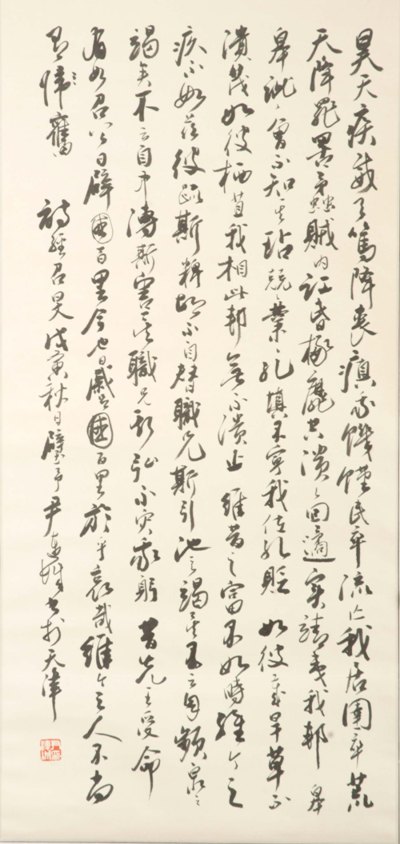 旻天疾威天篤降喪瘨我饑饉民卒流亡我居圉卒荒
天降罪罟蟊賊内訌昏椓靡共潰〻回遹實靖夷我邦 皋
〻訿〻曾不知其玷兢〻業〻孔填不寧我位孔貶 如彼歲旱草不
潰茂如彼栖苴我相此邦無不潰止 維昔之富不如時維今之
疚不如茲彼疏斯粺胡不自替職兄斯引池之竭矣不云自頻泉之
竭矣不云自中溥斯害矣職兄斯弘不烖我躬 昔先王受命
有如召公日辟國百里今也日蹙國百里於乎哀哉維今之人不尚
有舊 詩經召旻 戊寅秋日 尹連城書於天津